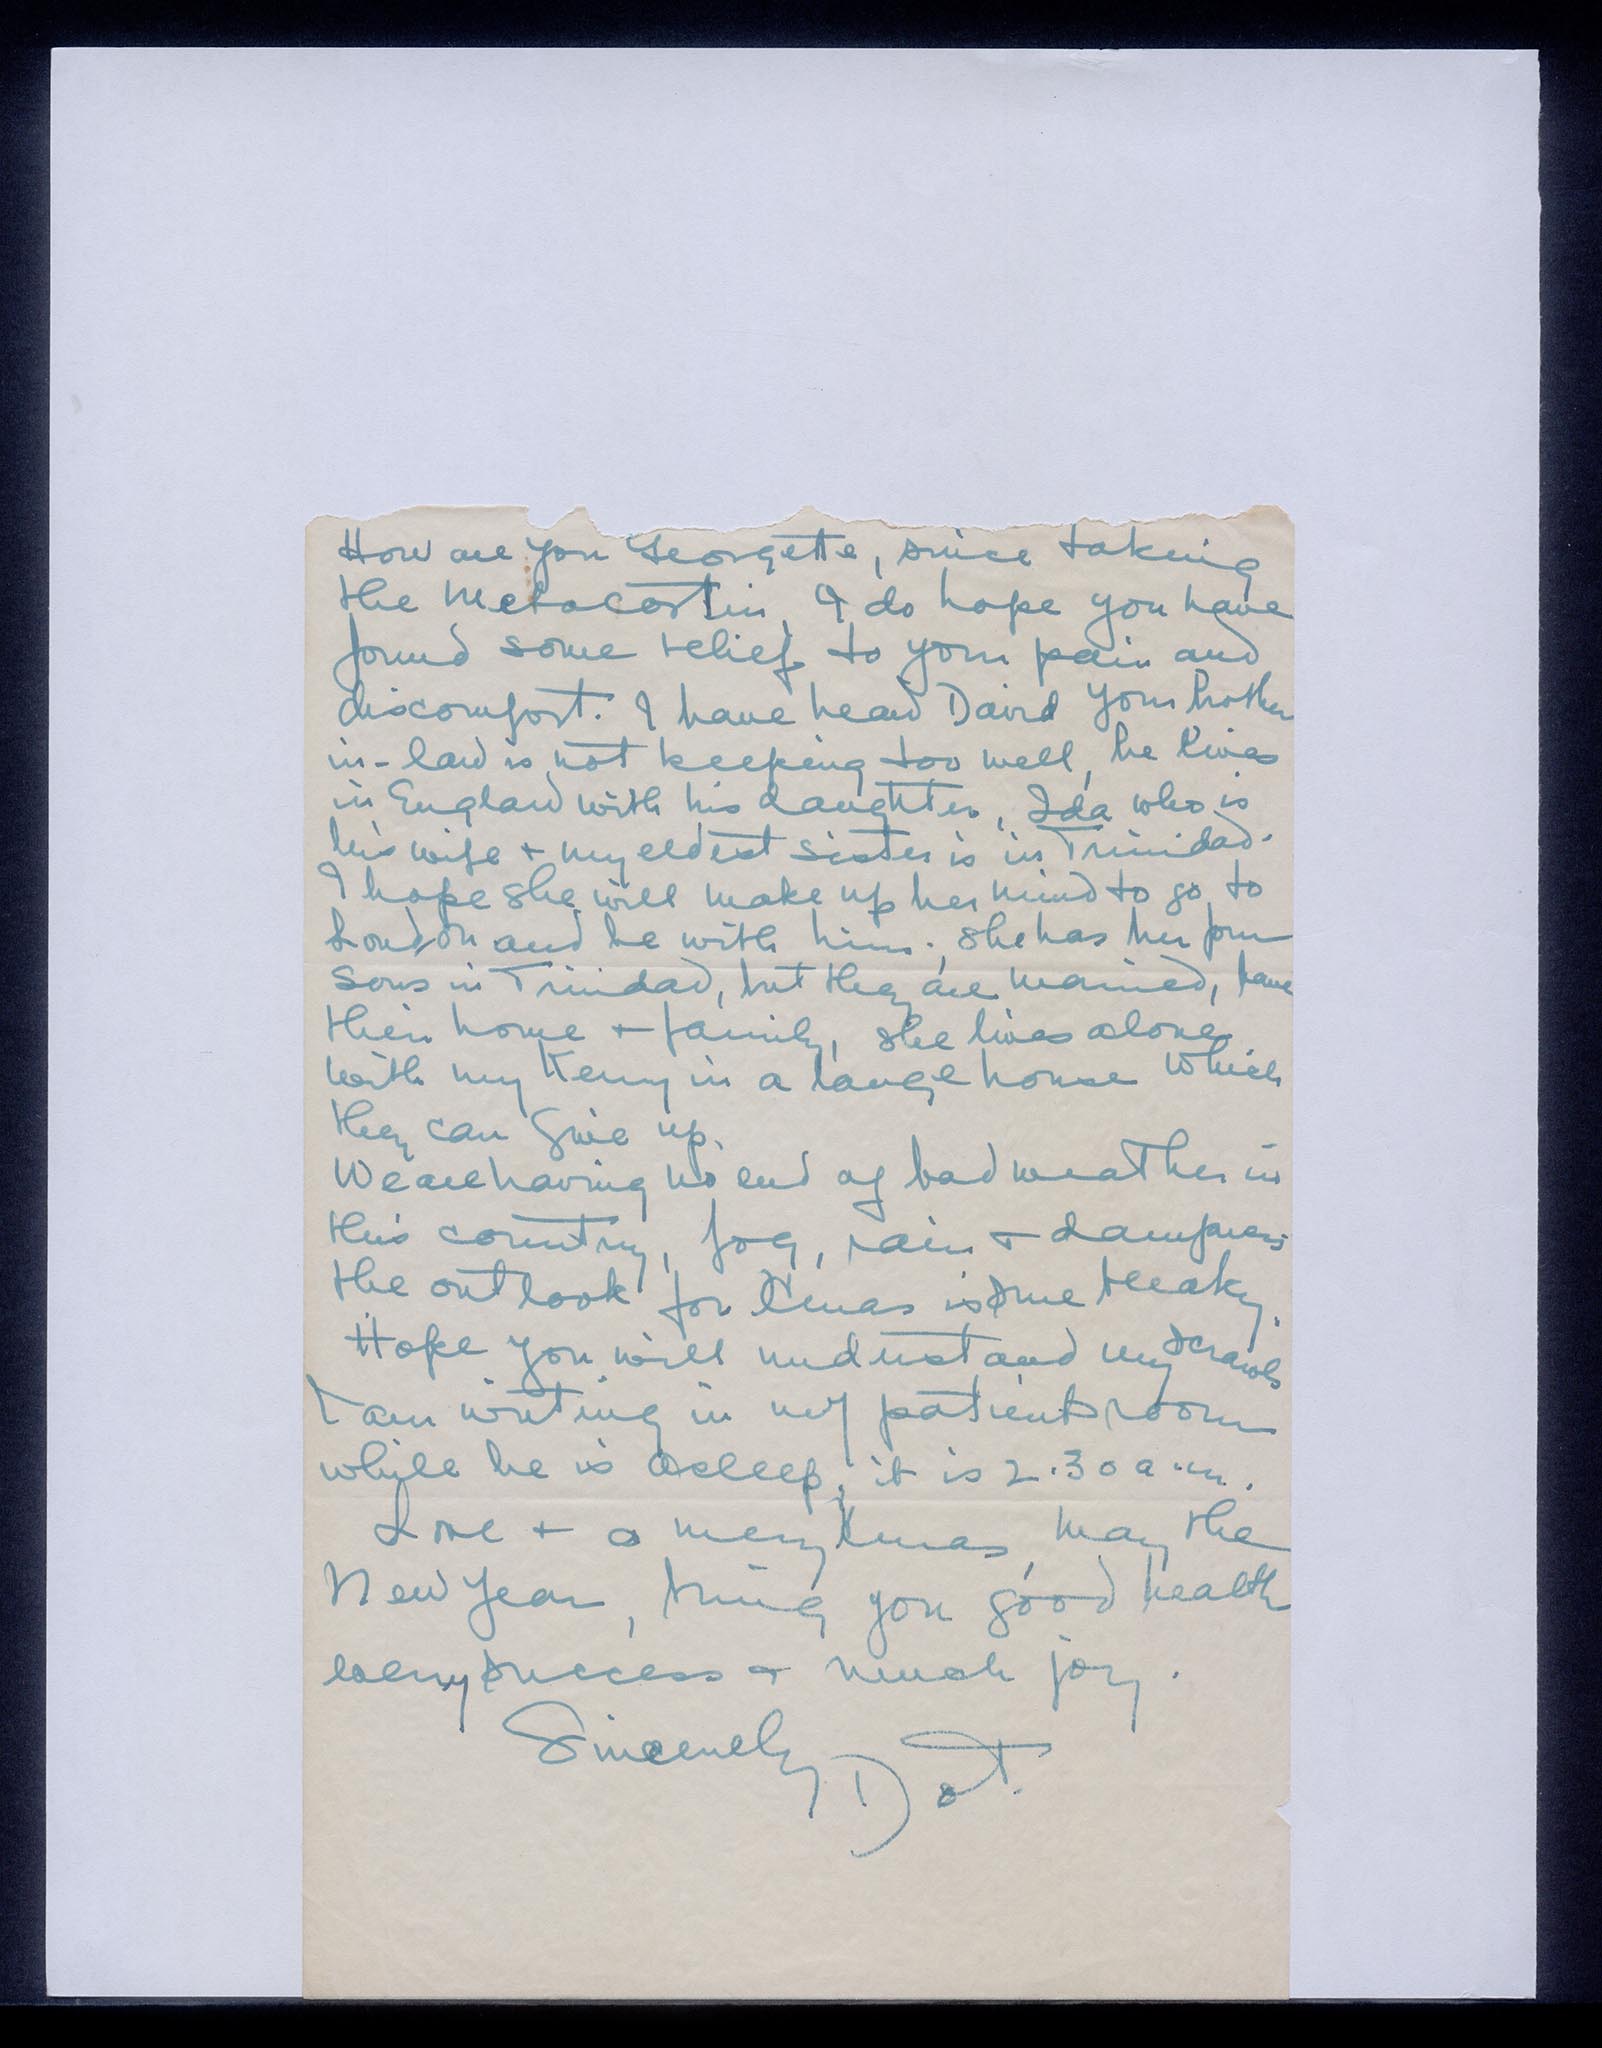 How are you Georgette, since taking
the Metacortin, I do hope you have
found some relief to your pain and
discomfort. I have heard David your brother
in-law is not keeping too well, he lives
in England with his daughter, Ida who is
his wife + my eldest sister is in Trinidad.
I hope she will make up her mind to go to
London and be with him; she has her four
sons in Trinidad, but they are married, have
their home + family, she lives alone
with my Kenny in a large house which
they can give up.
We are having no end of bad weather in
this country, fog, rain + dampness
the outlook for Xmas is one bleaky.
Hope you will understand my scrawls
I am writing in my patients room
while he is asleep, it is 2.30 a.m.
Love + a merry Xmas, may the
New Year, bring you good health
every success + much joy.
Sincerely
Dot.